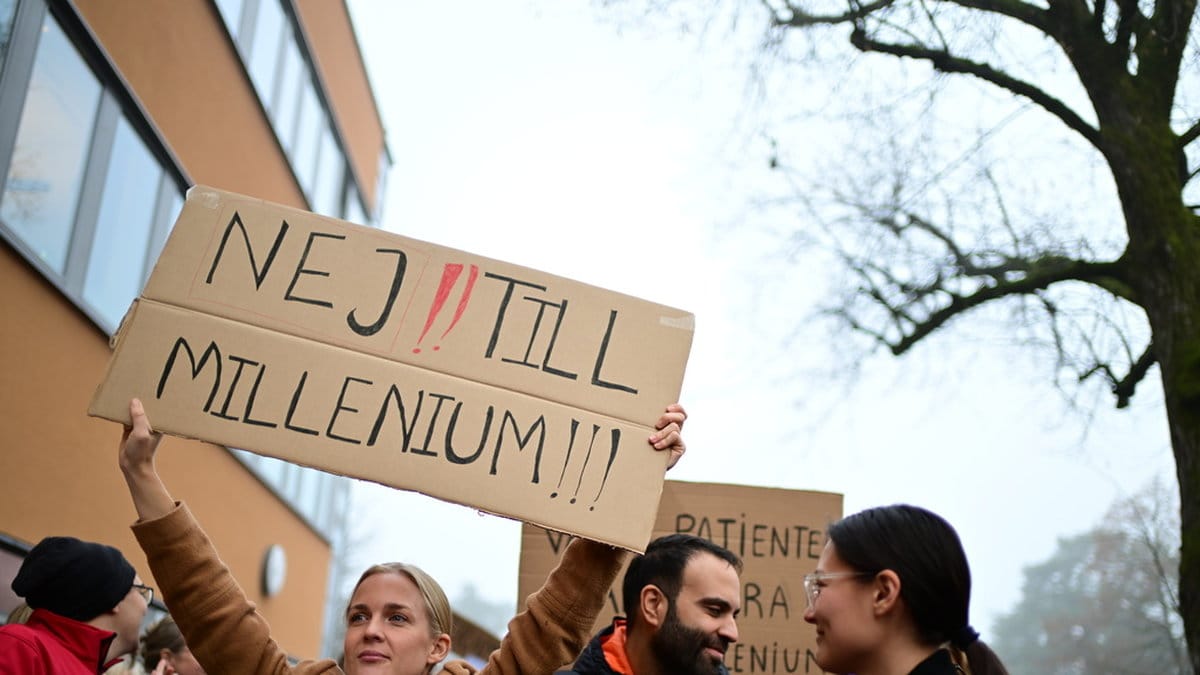 NEJ!! TILL
MILLENIUM!!!
PATIENTE
RA
LENIUM